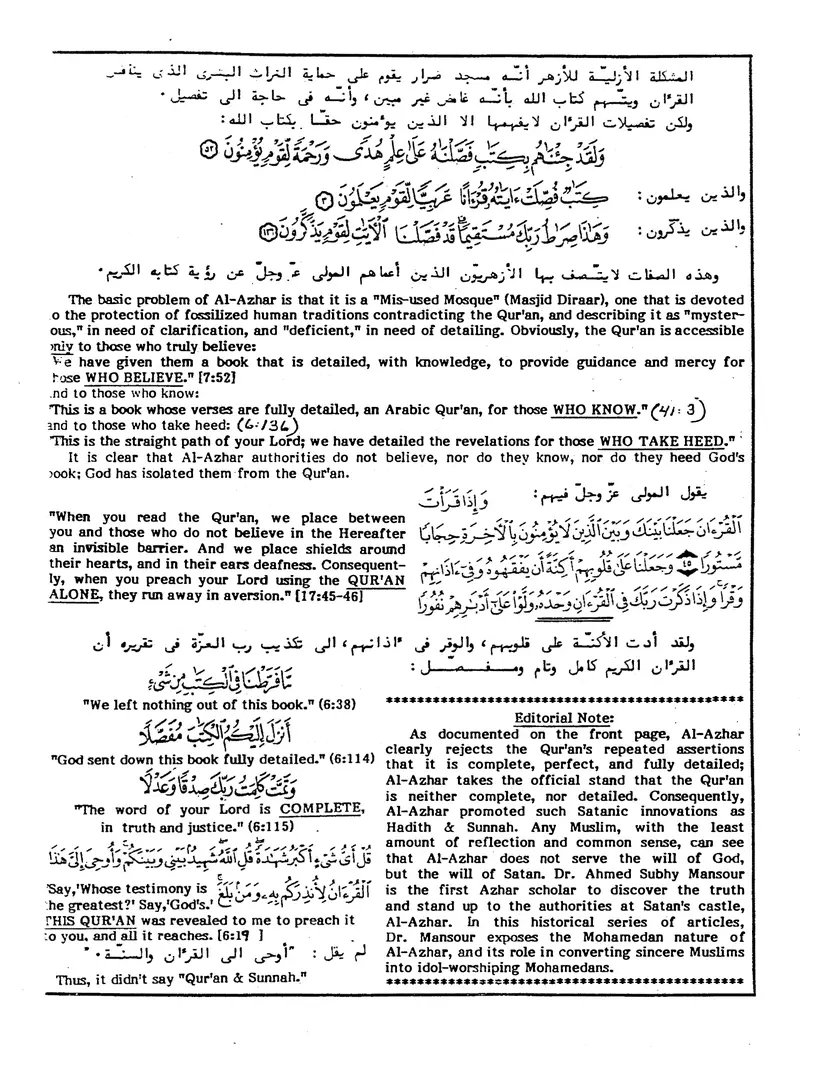 المشكلة الأزليّـة للأزهر أنّـه مسجد ضرار يقوم على حماية التراث البشرى الذى يناقـض
القرءان ويتّـهم كتاب الله بأنّـه غامض غير مبين، وأنّـه فى حاجة الى تفصيل ٠
ولكن تفصيلات القرءان لايفهمها الا الذين يوءمنون حقّـا بكتاب الله:
وَلَقَدْ جِئْنَاهُم بِكِتَٰبٍ فَصَّلْنَاهُ عَلَىٰ عِلْمٍ هُدًى وَرَحْمَةً لِّقَوْمٍ يُؤْمِنُونَ ٥٢
والذين يعلمون: كِتَٰبٌ فُصِّلَتْ ءَايَٰتُهُ قُرْءَانًا عَرَبِيًّا لِّقَوْمٍ يَعْلَمُونَ ٣
والذين يذكرون: وَهَٰذَا صِرَٰطُ رَبِّكَ مُسْتَقِيمًا قَدْ فَصَّلْنَا الْأَيَٰتِ لِقَوْمٍ يَذَّكَّرُونَ ١٢٦
وهذه الصفات لايتّـصف بها الأزهريّون الذين أعماهم المولى عزّ وجلّ عن رؤية كتابه الكريم٠
The basic problem of Al-Azhar is that it is a "Mis-used Mosque" (Masjid Diraar), one that is devoted
o the protection of fossilized human traditions contradicting the Qur'an, and describing it as "myster-
ous," in need of clarification, and "deficient," in need of detailing. Obviously, the Qur'an is accessible
only to those who truly believe:
We have given them a book that is detailed, with knowledge, to provide guidance and mercy for
hose WHO BELIEVE." [7:52]
nd to those who know:
"This is a book whose verses are fully detailed, an Arabic Qur'an, for those WHO KNOW." (41:3)
and to those who take heed: (6:126)
"This is the straight path of your Lord; we have detailed the revelations for those WHO TAKE HEED."
It is clear that Al-Azhar authorities do not believe, nor do they know, nor do they heed God's
book; God has isolated them from the Qur'an.
يقول المولى عزّ وجلّ فيهم: وَإِذَا قَرَأْتَ
الْقُرْءَانَ جَعَلْنَا بَيْنَكَ وَبَيْنَ الَّذِينَ لَا يُؤْمِنُونَ بِالْأَخِرَةِ حِجَابًا
مَّسْتُورًا ٤٥ وَجَعَلْنَا عَلَىٰ قُلُوبِهِمْ أَكِنَّةً أَن يَفْقَهُوهُ وَفِي ءَاذَانِهِمْ
وَقْرًا وَإِذَا ذَكَرْتَ رَبَّكَ فِي الْقُرْءَانِ وَحْدَهُ وَلَّوْا عَلَىٰ أَدْبَٰرِهِمْ نُفُورًا
"When you read the Qur'an, we place between
you and those who do not believe in the Hereafter
an invisible barrier. And we place shields around
their hearts, and in their ears deafness. Consequent-
ly, when you preach your Lord using the QUR'AN
ALONE, they run away in aversion." [17:45-46]
ولقد أدت الأكنّـة على قلوبهم، والوقر فى ءاذانهم، الى تكذيب رب العزّة فى تقريره أن
القرءان الكريم كامل وتام ومـفـصّـل:
مَّا فَرَّطْنَا فِي الْكِتَٰبِ مِن شَيْءٍ
"We left nothing out of this book." (6:38)
أَنزَلَ إِلَيْكُمُ الْكِتَٰبَ مُفَصَّلًا
"God sent down this book fully detailed." (6:114)
وَتَمَّتْ كَلِمَتُ رَبِّكَ صِدْقًا وَعَدْلًا
"The word of your Lord is COMPLETE,
in truth and justice." (6:115)
قُلْ أَيُّ شَيْءٍ أَكْبَرُ شَهَٰدَةً قُلِ اللَّهُ شَهِيدٌ بَيْنِي وَبَيْنَكُمْ وَأُوحِيَ إِلَيَّ هَٰذَا
الْقُرْءَانُ لِأُنذِرَكُم بِهِ وَمَن بَلَغَ
"Say,'Whose testimony is
the greatest?' Say,'God's.'
THIS QUR'AN was revealed to me to preach it
to you, and all it reaches. [6:19 ]
لم يقل: "أوحى الى القرءان والسنّـة ٠"
Thus, it didn't say "Qur'an & Sunnah."
***********************************************
Editorial Note:
As documented on the front page, Al-Azhar
clearly rejects the Qur'an's repeated assertions
that it is complete, perfect, and fully detailed;
Al-Azhar takes the official stand that the Qur'an
is neither complete, nor detailed. Consequently,
Al-Azhar promoted such Satanic innovations as
Hadith & Sunnah. Any Muslim, with the least
amount of reflection and common sense, can see
that Al-Azhar does not serve the will of God,
but the will of Satan. Dr. Ahmed Subhy Mansour
is the first Azhar scholar to discover the truth
and stand up to the authorities at Satan's castle,
Al-Azhar. In this historical series of articles,
Dr. Mansour exposes the Mohamedan nature of
Al-Azhar, and its role in converting sincere Muslims
into idol-worshiping Mohamedans.
***********************************************